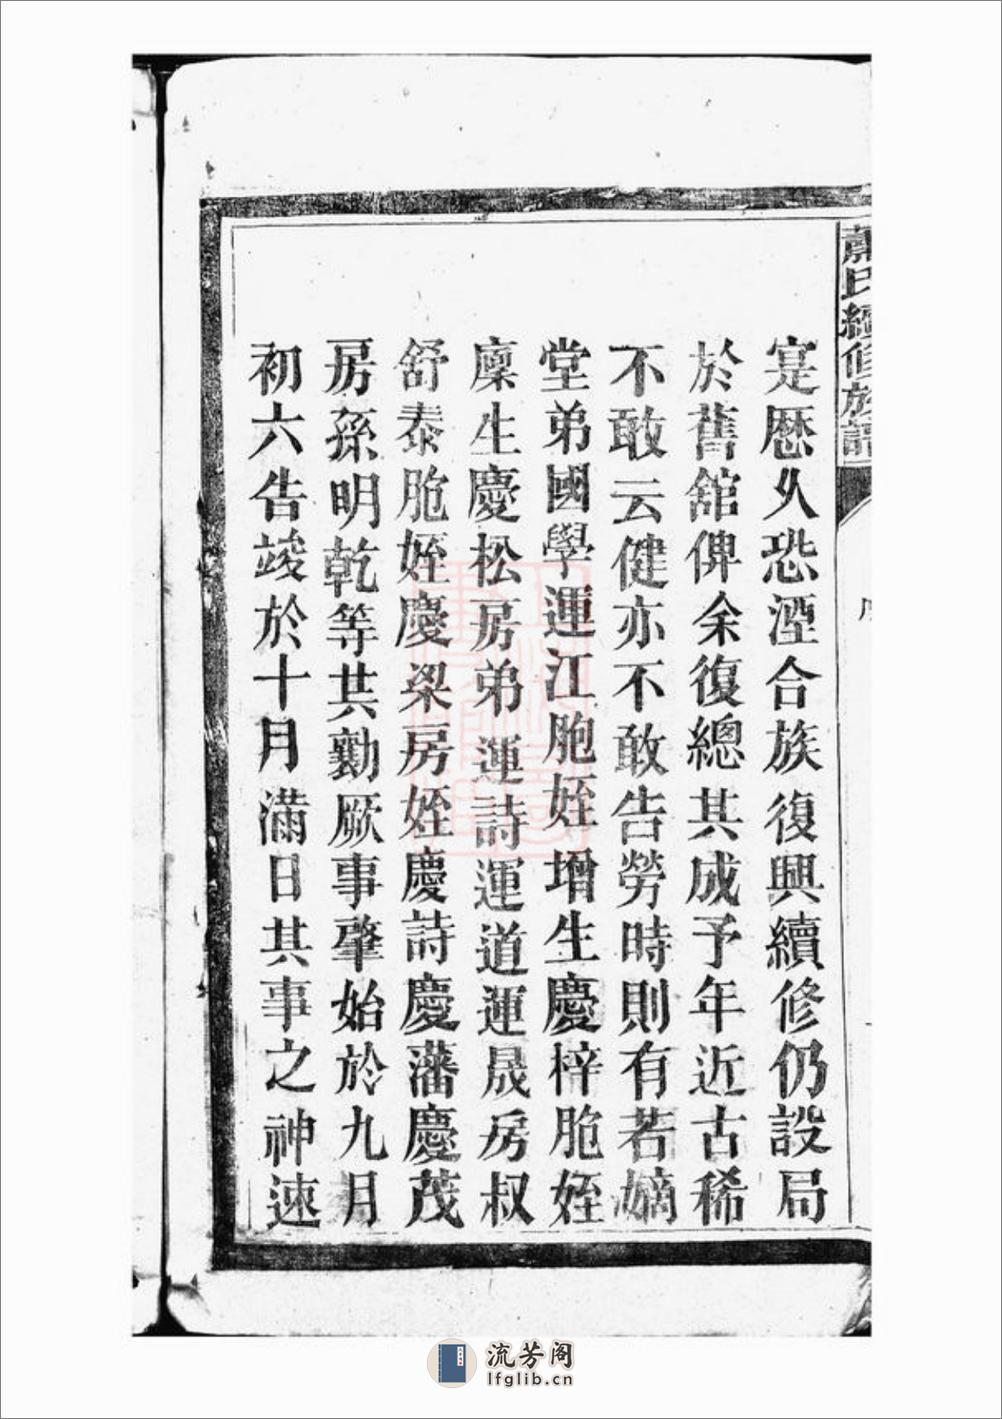 氏續修族譜
寔歷久恐湮合族復興續修仍設局
於舊舘俾余復總其成予年近古稀
不敢云健亦不敢告勞時則有若嫡
堂弟國學運江胞姪增生慶梓胞姪
廩生慶松房弟運詩運道運晟房叔
舒泰胞姪慶梁房姪慶詩慶藩慶茂
房孫明乾等共勷厥事肇始於九月
初六告竣於十月滿日其事之神速
流芳阁
lfglib.cn